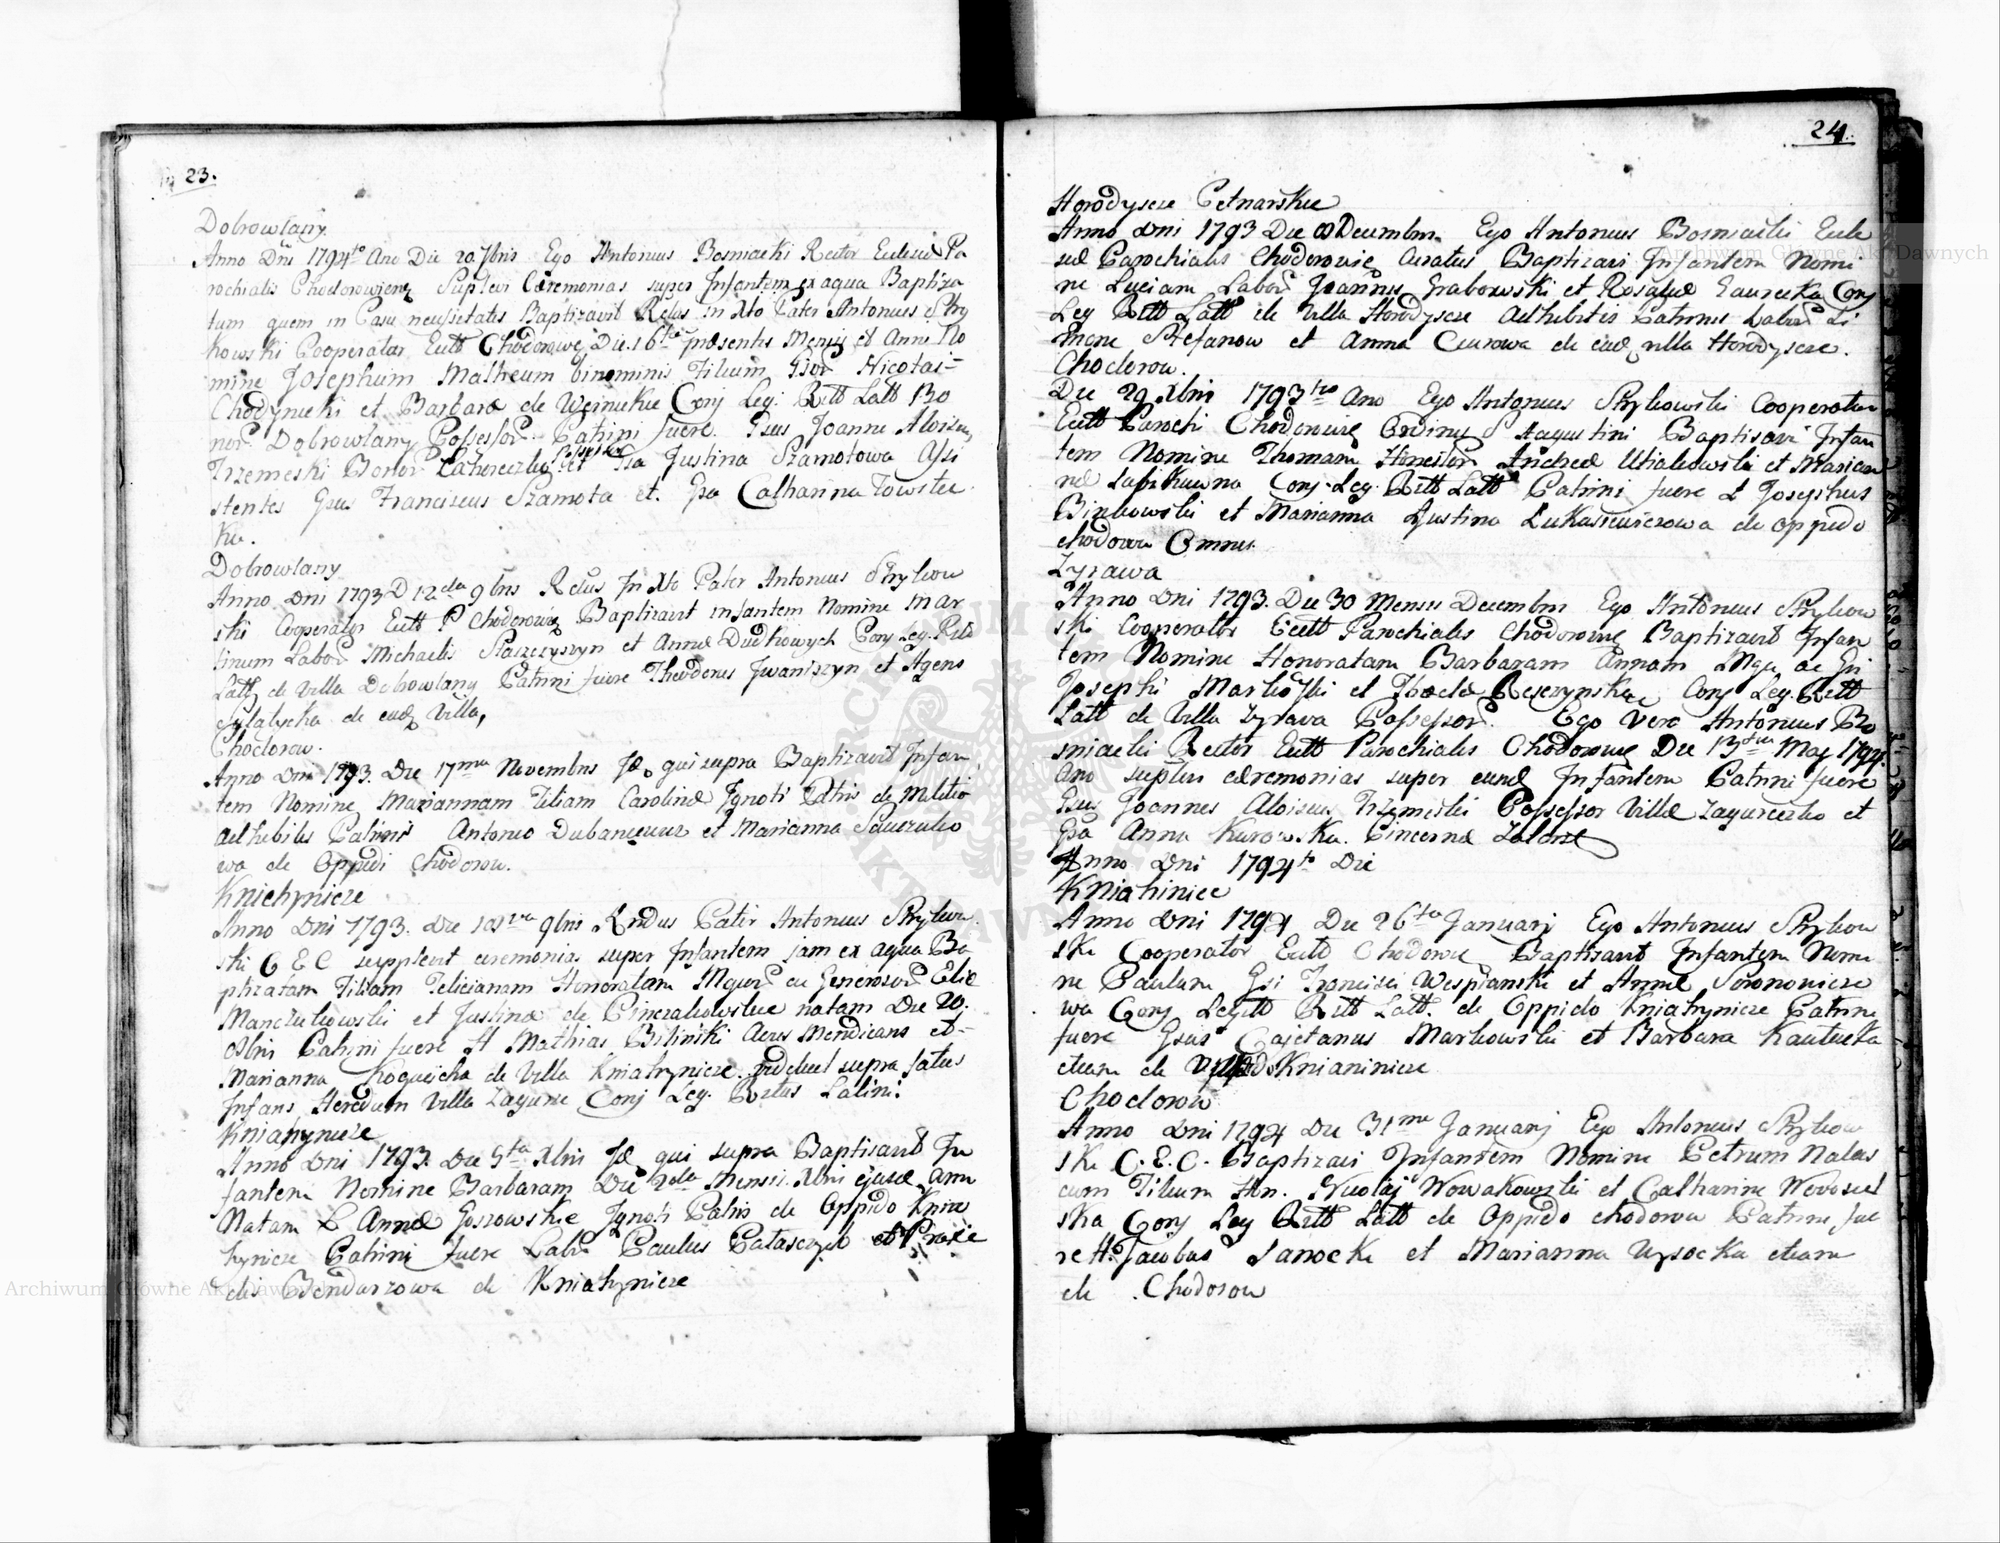 23.
Dobrowlany
Anno Dni 1794to Ano Die 20 7bris Ego Antonius Bosniacki Rector Eccleside Pa
rochialis Chodoroviens Suplevi Cæremonias super Infantem ex aqua Baptiza
tum quem in Casu necessietatis Baptizavit Rdus in Xto Pater Antonius Stry
kowski Cooperator Eccl Chodorovie Die 16ta præsentis Mensis et Anni No
mine Josephum Matheum binominis Filium Gsor Nicolai
Chodynicki et Barbara de Conj Leg: Ritt Latt Bo
nor Dobrowlany Possessor Patrini fuere Gsus Joanne Aloisius
Trzemeski Bonor possessor et Gsa Justina Szamotowa Assi
stentes Gsus Franciscus Szamota et Gsa Catharina Towste
Ka.
Dobrowlany
Anno Dni 1793 D 12da 9bris Rdus In Xto Pater Antonius Strykow
ski Cooperator Eccll P Chodorovie Baptizavit infantem Nomine Mar
tinum Labor Michaelis Staszczyszyn et Annæ Dudkowych Conj Leg. Ritt
Latt de Villa Dobrowlany Patrini fuere Theodorus Iwaniszyn et
de ead Villa,
Chodorow.
Anno Dni 1793. Die 17ma Novembris Id qui supra Baptizavit Infan
tem Nomine Mariannam Filiam Carolinæ Ignoti Patris de Militio
adhibitis Patrinis Antonio et Marianna
wa de Oppidi Chodorow.
Kniehynicze
Anno Dni 1793. Die 9bris Rndus Pater Antonius Strykow
ski C E C supplevit ceremonias super Infantem jam ex aqua Ba
ptizatam Filiam Felicianam Honoratam Mgcor ac Generosor Eliæ
Manczukowski et Justinæ de natam Die 20.
8bris Patrini fuere H Mathias Bilinski Acus Mendicans et
Marianna de Villa Kniahynicze. supra fatus
Infans Heredum Villa Zagurie Conj Leg. Ritus Latini.
Kniahynicze
Anno Dni 1793. Die 5ta Xbris Id qui supra Baptisavit In
fantem Nomine Barbaram Die 2da Mensis Xbris ejusd Anni
Natam L Annæ Goszowskie Ignoti Patris de Oppido Knia
hynicze Patrini fuere Labr Paulus Patasczyk et Praxe
dis Bendarzowa de Kniahynicze
24
Horodyscze Cetnarskie
Anno Dni 1793 Die 8 Decembris Ego Antonius Bosniacki Eccle
siæ Parochialis Chodorovie Curatus Baptizavi Infantem Nomi
ne Luciam Labor Joannis Grabowski et Rosaliæ Conj
Leg Ritt Latt de Villa Horodyscze Adhibitis Patrinis Labor Si
mone Stefanow et Anna de ead villa Horodyscze.
Chodorow.
Die 29 Xbris 1793tio Ano Ego Antonius Strykowski Cooperator
Eccll Paroch Chodorovie Ordinis S Augustini Baptisavi Infan
tem Nomine Thomam Honestor Andreæ et Marian
næ Conj. Leg. Ritt Latt Patrini fuere L Josephus
Binkowski et Marianna Justina Lukasiewiczowa de oppido
chodorow Omnes.
Zyrawa
Anno Dni 1793. Die 30 Mensis Decembris Ego Antonius Strykow
ski Cooperator Eccll Parochialis Chodorovie Baptizavit Infan
tem Nomine Honoratam Barbaram Annam Mgci ac Gsi
Josephi Markowski et Theclæ Conj Leg. Ritt
Latt de Villa Zyrava Possessor. Ego Vero Antonius Bo
sniacki Rector Eccll Parochialis Chodorovie Die 13tia Maj 1794
Ano suplevi cæremonias super eund Infantem Patrini fuere
Gsus Joannes Aloisius Trzemeski Possessor Villæ Zagureczko et
Gsa Anna Kurowska. Pincerna
Anno Dni 1794to Die
Kniahinice
Anno Dni 1794 Die 26ta Januarj Ego Antonius Strykow
ski Cooperator Eccll Chodorovie Baptisavit Infantem Nomi
ne Paulum Gsi Francisci Wespianski et Annæ
wa Conj Legitt Ritt Latt. de Oppido Kniahynicze Patrini
fuere Gsus Cajetanus Markowski et Barbara
etiam de Kniahinicze
Chodorow
Anno Dni 1794 Die 31ma Januarj Ego Antonius Strykow
ski C. E. C. Baptizavi Infantem Nomine Petrum Nolas
cum Filium Hn. Nicolaj Nowakowski et Catharine
ska Conj Leg Ritt Latt de Oppido chodorow Patrini fue
re H. Jacobus Sanocki et Marianna Wysocka etiam
de Chodorow
Archiwum Główne Akt Dawnych
Archiwum Główne Akt Dawnych